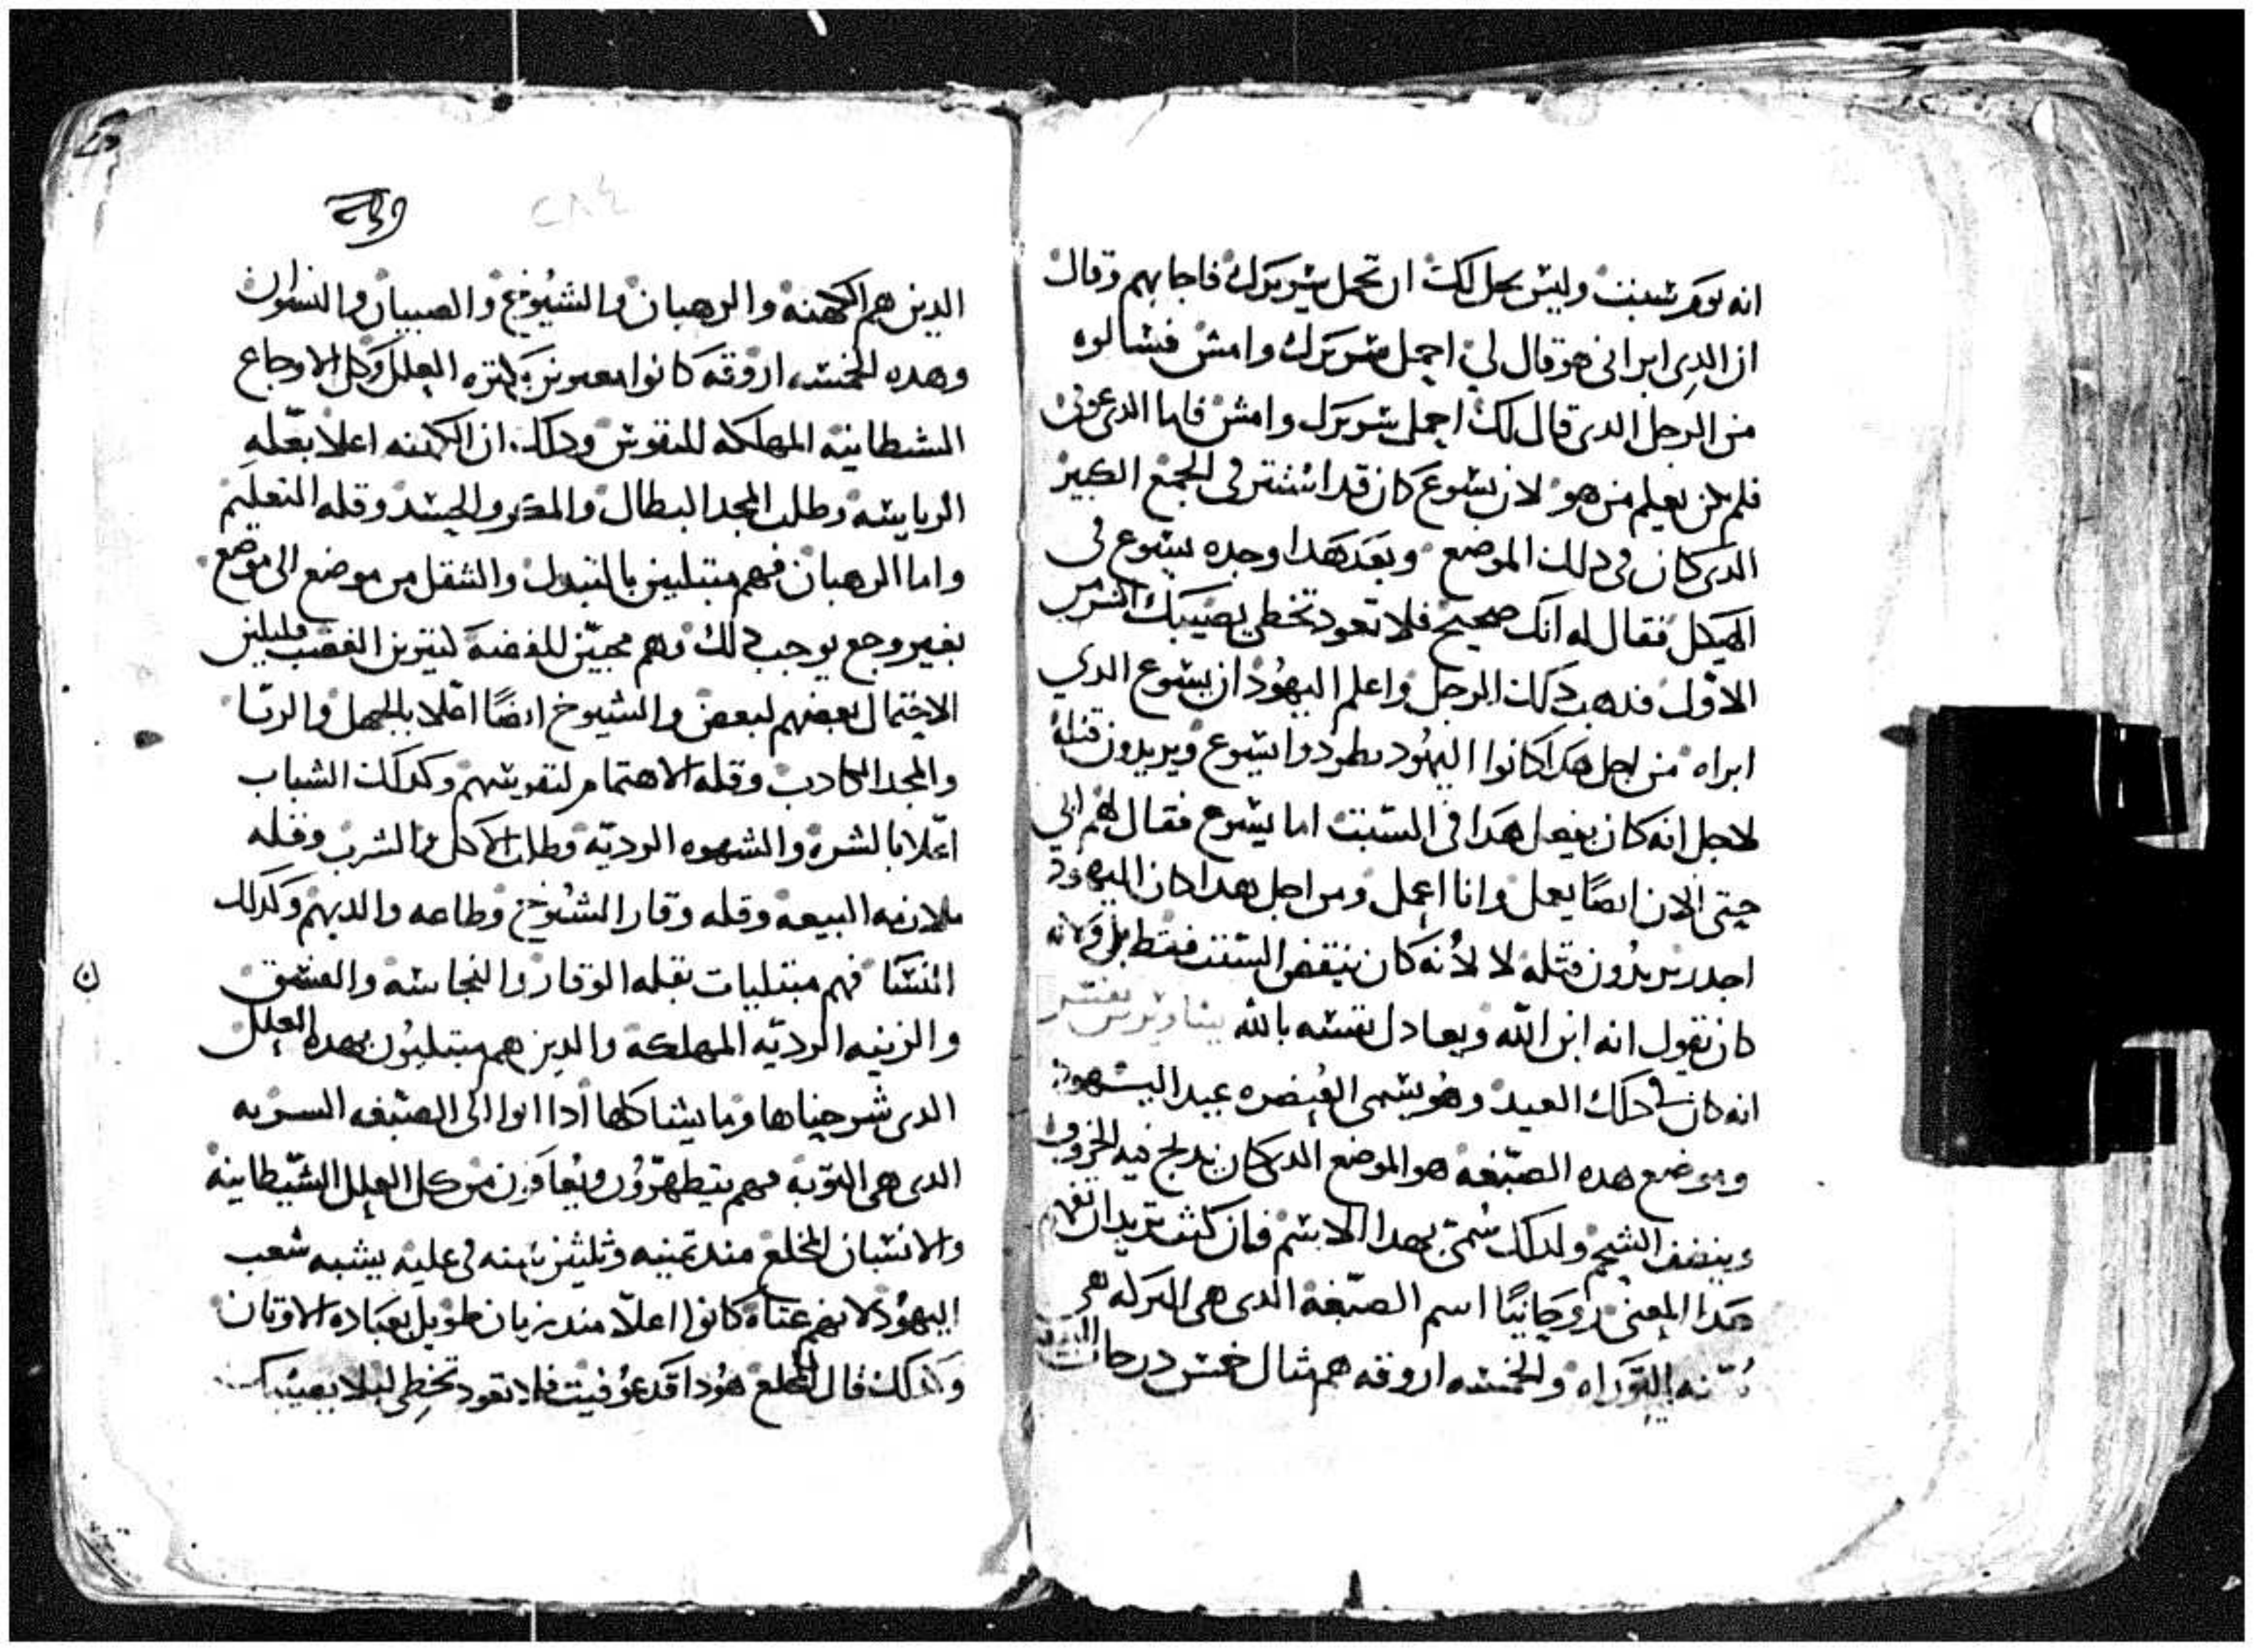 انه يوم سبت وليس يحل لك ان تحمل سريرك فاجابهم وقال
ان الدى ابرانى هو قال لي احمل سريرك وامش فسالوه
من الرجل الدى قال لك احمل سريرك وامش فاما الدى عوفى
فلم يكن يعلم من هو لان يسوع كان قد استتر فى الجمع الكبير
الدى كان فى دلك الموضع وبعد هدا وجده يسوع فى
الهيكل فقال له انك صحيح فلا تعود تخطى يصيبك اشر من
الاول فدهب دلك الرجل واعلم اليهود ان يسوع الدي
ابراه من اجل هدا كانوا اليهود يطردوا يسوع ويريدون قتله
لاجل انه كان يفعل هدا فى السبت اما يسوع فقال لهم ابي
حتى الان ايضًا يعمل وانا اعمل ومن اجل هدا كان اليهود
اجدر يريدون قتله لا لأنه كان ينقض السبت فقط بل ولانه
كان يقول انه ابن الله ويعادل نفسه بالله
انه كان فى دلك العيد وهو يسمى العنصره عيد اليهود
وموضع هده الصبغه هو الموضع الدى كان يدبح فيه الخروف
وينضف الشحم ولدلك سمى بهدا الاسم فان كنت تريد ان تفهم
هدا المعنى روحانيًا اسم الصبغه الدى هى البركه هى
التوراه والخمسه اروقه هم مثال خمس درجات
الدين هم الكهنه والرهبان والشيوخ والصبيان والنسوان
وهده الخمسه اروقه كانوا مملوين بكتره العلل وكل الاوجاع
الشيطانيه المهلكه للنفوس ودلك ان الكهنه اعلا بعّله
الرياسه وطلب المجد البطال والمكر والحسد وقله التعليم
واما الرهبان فهم مبتليين بالتبدل والتنقل من موضع الى موضع
بغير وجع يوجب دلك وهم محبيّن للفضه كتيرين الغضب قليلين
الاحتمال بعضهم لبعض والشيوخ ايضًا اعّلا بالجهل والريّا
والمجد الكادب وقله الاهتمام لنفوسهم وكدلك الشباب
اعّلا بالشره والشهوه الرديّه وطلب الاكل والشرب وقله
ملازمه البيعه وقله وقار الشيوخ وطاعه والديهم وكدلك
النسا فهم مبتليات بقله الوقار والنجاسه والعشق
والزينه الرديّه المهلكه والدين هم مبتليون بهده العلل
الدى شرحناها وما يشاكلها ادا اتوا الى الصبغه السريه
الدى هى التوبه فهم يتطهرون ويعافون من كل العلل الشيطانيه
والانسان المخلع مند تمنيه وثلثين سنه فى عليه يشبه شعب
اليهود لانهم عتاة كانوا اعلّا مند زمان طويل بعباده الاوتان
وكدلك قال للمخلع هودا قد عوفيت فلا تعود تخطى ليلا يصيبك